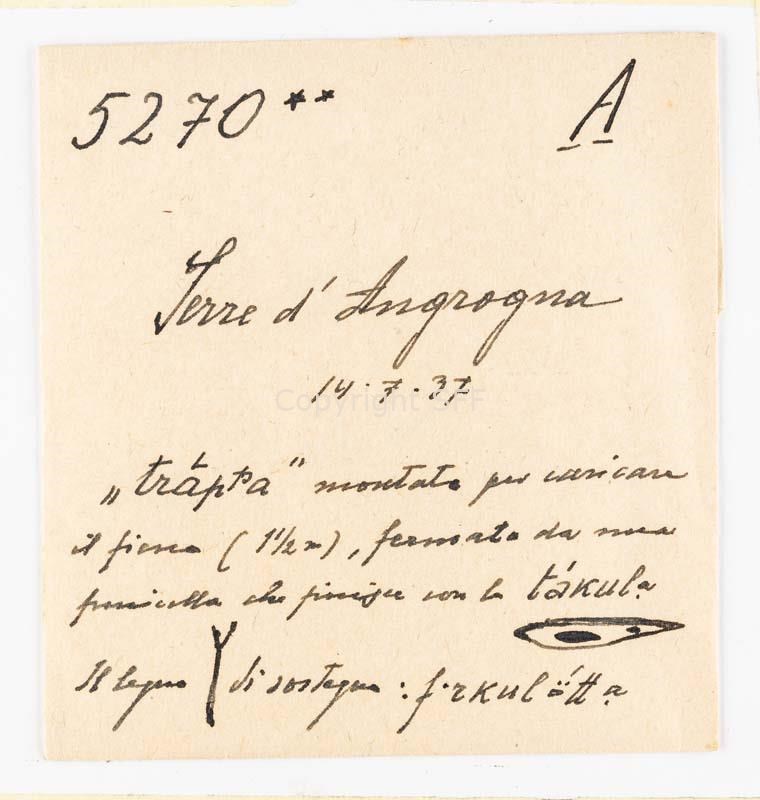 5270** A
Serre d'Angrogna
14.7.37
Copyright SFF
„tráppa" montata per caricare
il fieno (1 1/2 m), fermata da una
funicella che finisce con la tákula
Il legno di sostegno : f.rkulötta